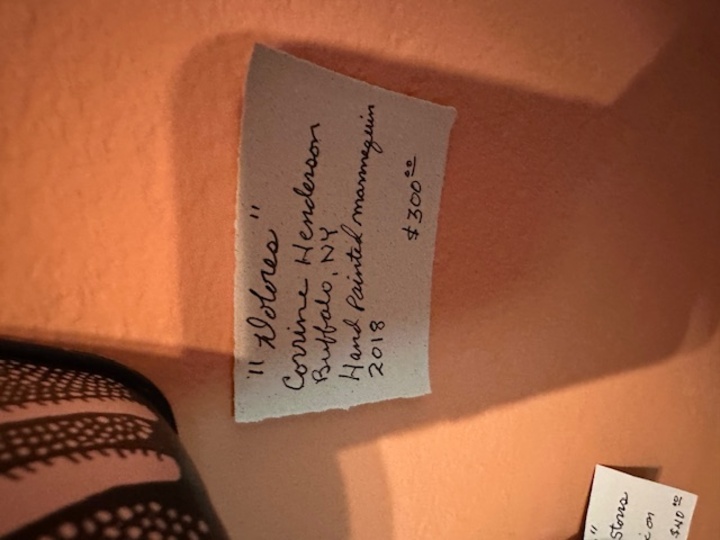 "Dolores"
Corrine Henderson
Buffalo, NY
Hand Painted mannequin
2018
$300.00
"
on
$40.00